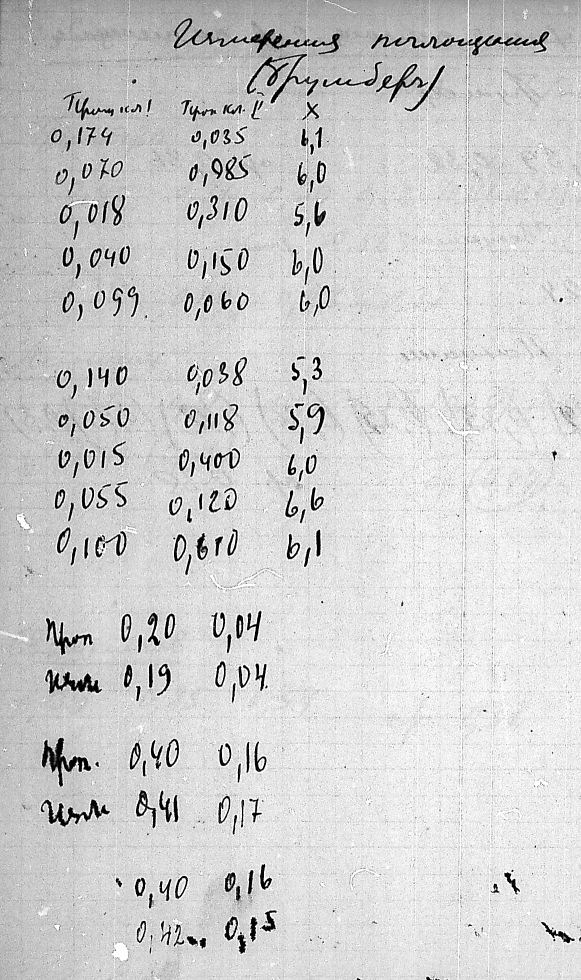 Измерения поглощения
(Грумберг)
Проп кл. I Проп кл. II X
0,174 0,035 6,1
0,070 0,085 6,0
0,018 0,310 5,6
0,040 0,150 6,0
0,099 0,060 6,0
0,140 0,038 5,3
0,050 0,118 5,9
0,015 0,400 6,0
0,055 0,120 6,6
0,100 6,1
Проп 0,20 0,04
Изм 0,19 0,04
Проп. 0,40 0,16
Изм 0,41 0,17
0,40 0,16
0,42 0,15